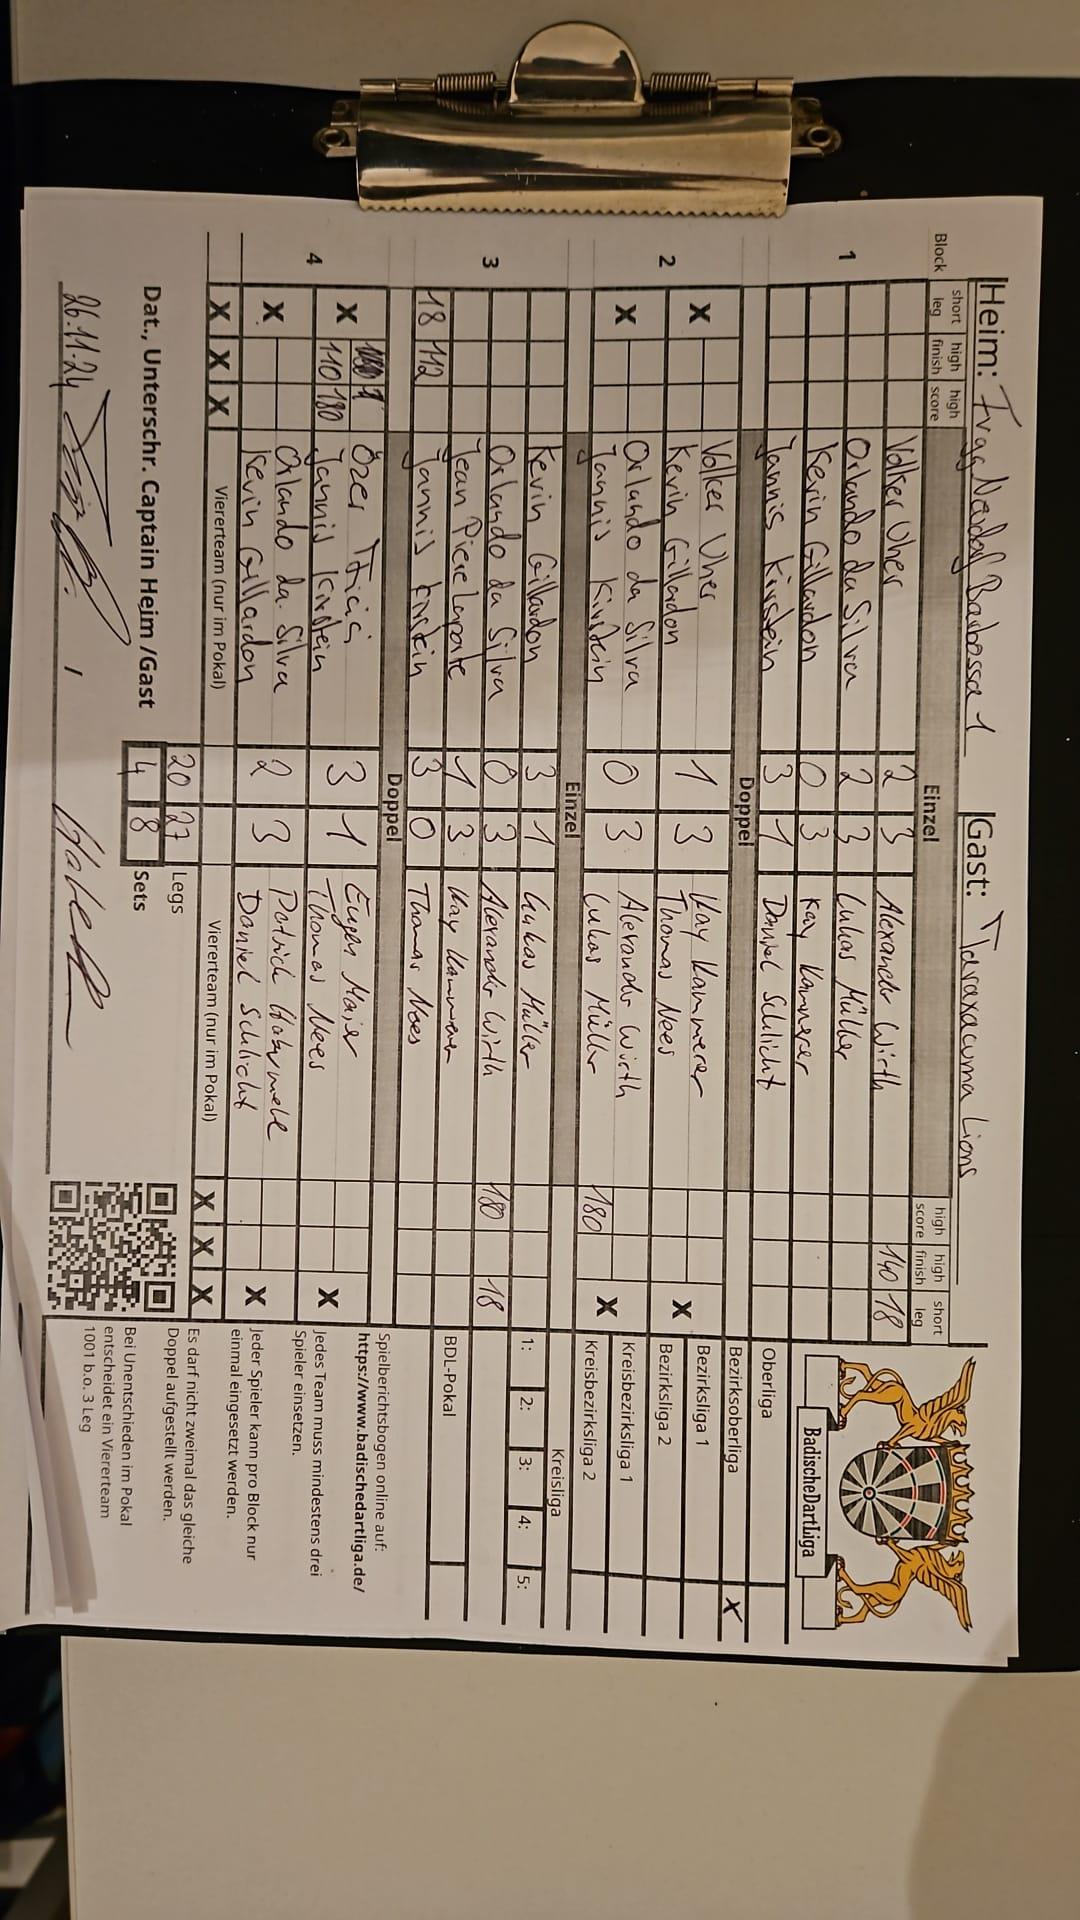 Heim: Fragg Nordog Barbossa 1 Gast: Taraxacuma Lions
Block short leg high finish high score Einzel high score high finish short leg
1 Volker Uher 2 3 Alexander Wirth 140 18
Orlando da Silva 2 3 Lukas Müller
Kevin Gillardon 0 3 Kay Kammerer
Jannis Kirstein 3 1 Daniel Schlicht
Doppel
2 X Volker Uher 1 3 Kay Kammerer X
Kevin Gillardon Thomas Nees
X Orlando da Silva 0 3 Alexander Wirth X
Jannis Kirstein Lukas Müller 180
Einzel
3 Kevin Gillardon 3 1 Lukas Müller
Orlando da Silva 0 3 Alexander Wirth 180 18
Jean Piere Laporte 1 3 Kay Kammerer
18 112 Jannis Kirstein 3 0 Thomas Nees
Doppel
4 X Özer 3 1 Eugen Maier X
110 180 Jannis Kirstein Thomas Nees
X Orlando da Silva 2 3 Patrick X
Kevin Gillardon Daniel Schlicht
X X X Viererteam (nur im Pokal) Viererteam (nur im Pokal) X X X
20 27 Legs
Dat., Unterschr. Captain Heim /Gast 4 8 Sets
26.11.24
BadischeDartLiga
Oberliga
Bezirksoberliga X
Bezirksliga 1
Bezirksliga 2
Kreisbezirksliga 1
Kreisbezirksliga 2
Kreisliga
1: 2: 3: 4: 5:
BDL-Pokal
Spielberichtsbogen online auf:
https://www.badischedartliga.de/
Jedes Team muss mindestens drei
Spieler einsetzen.
Jeder Spieler kann pro Block nur
einmal eingesetzt werden.
Es darf nicht zweimal das gleiche
Doppel aufgestellt werden.
Bei Unentschieden im Pokal
entscheidet ein Viererteam
1001 b.o. 3 Leg